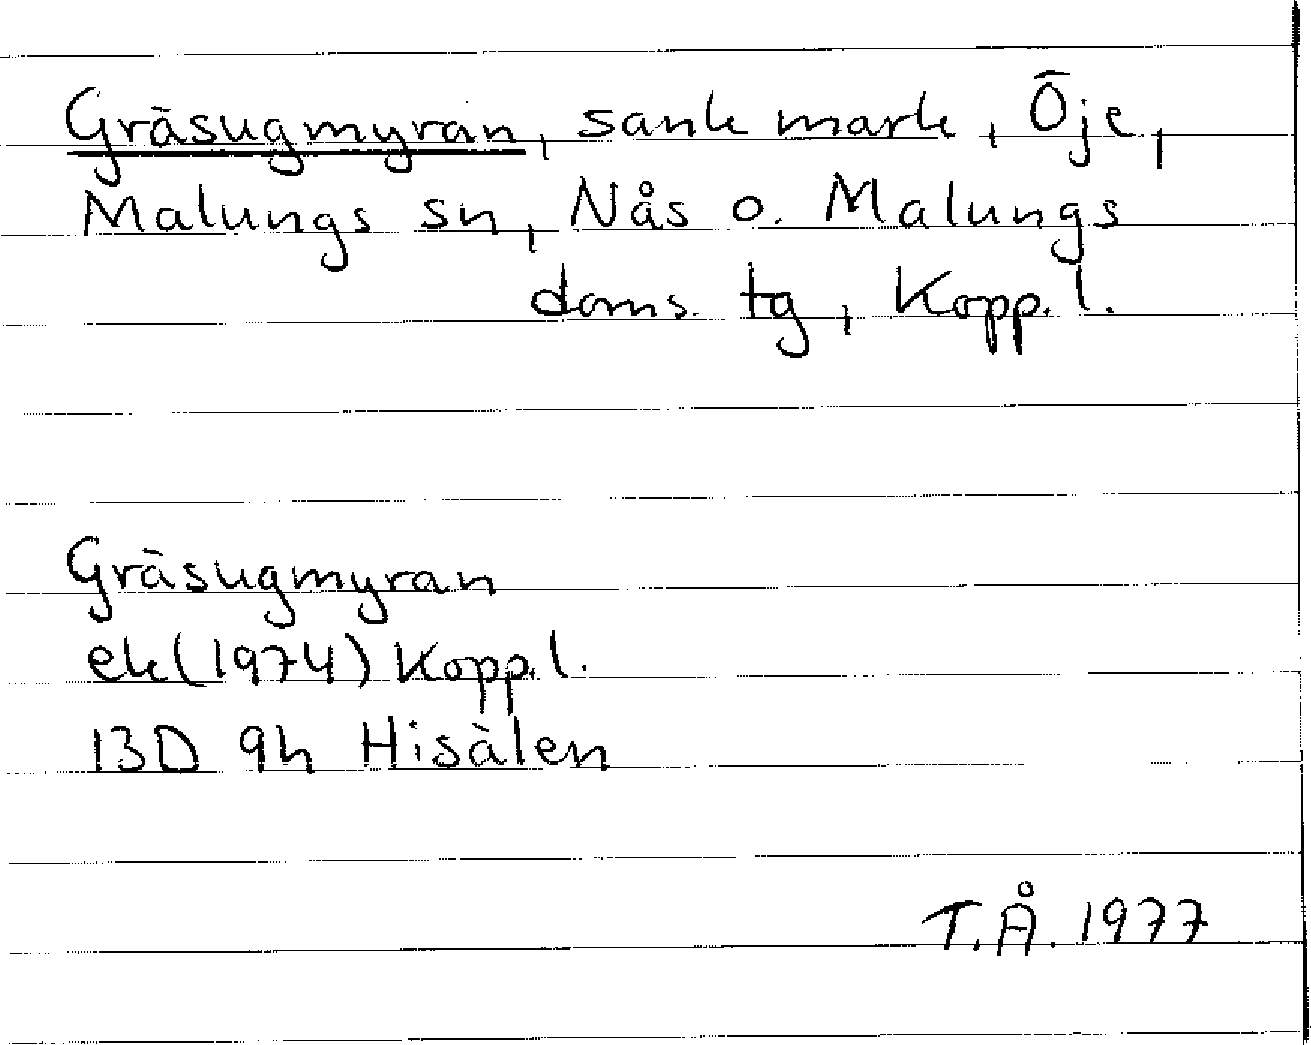 Gräsugmyran, sank mark, Öje,
Malungs sn, Nås o. Malungs
doms. tg, Kopp. l.
Gräsugmyran
ek (1974) Kopp. l.
13D 9h Hisälen
T.Å. 1977